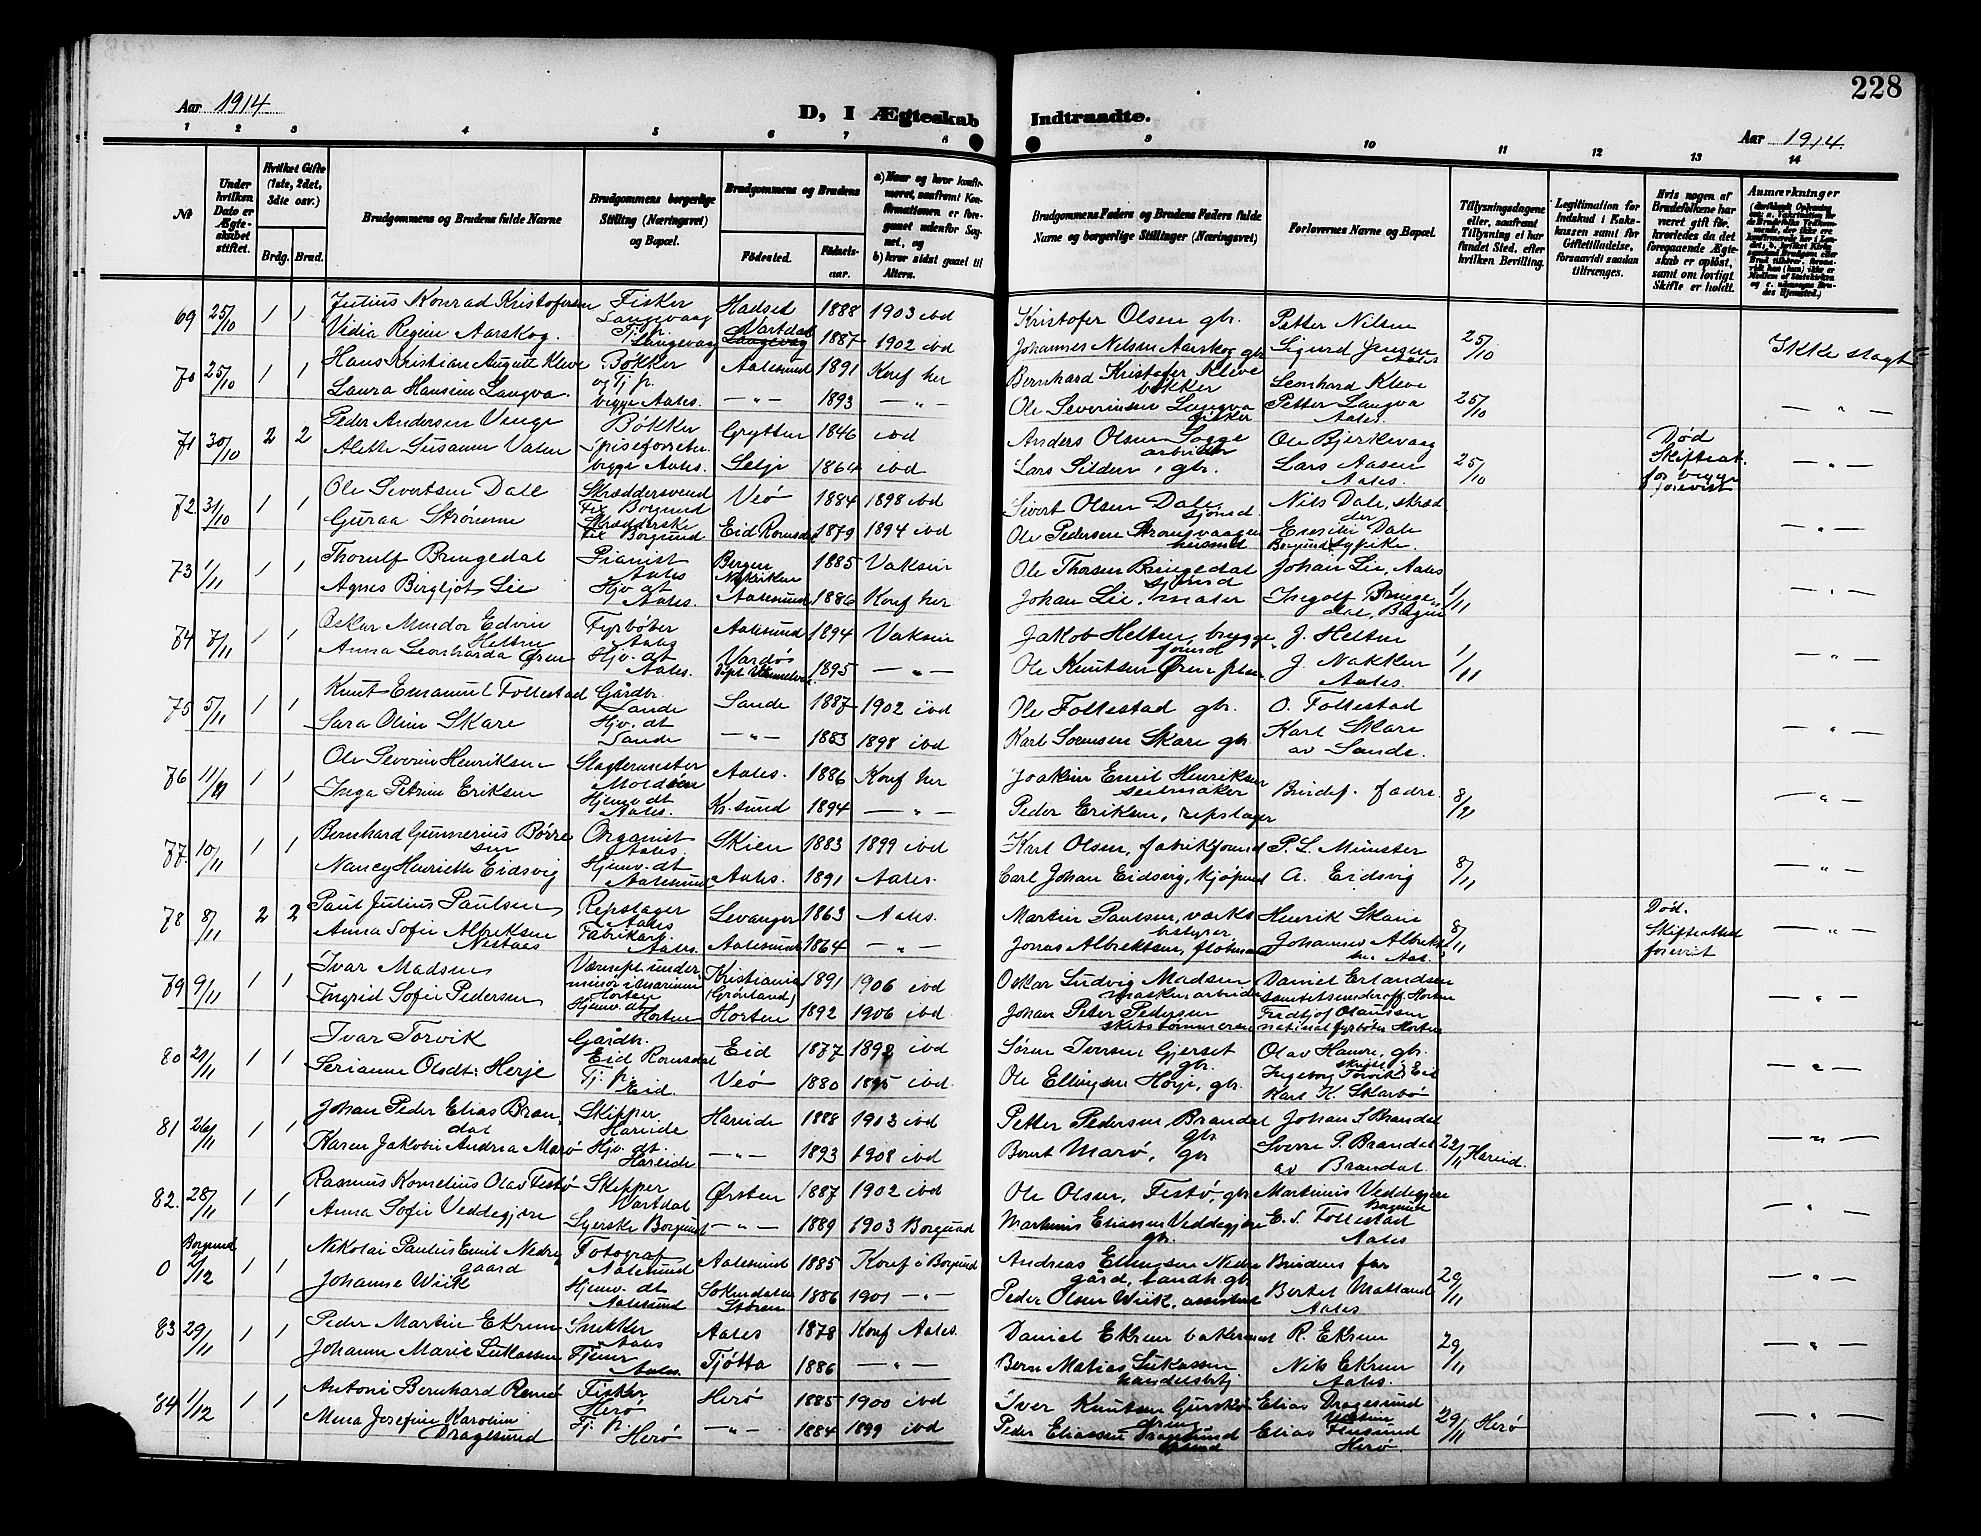 228
Aar 1914
D, I Ægteskab Indtraadte.
Aar 1914.
1 2 3 4 5 6 7 8 9 10 11 12 13 14
№
Under hvilken Dato er Ægteskabet stiftet.
Hvilket Gifte (1ste, 2det, 3die osv.)
Brdg. Brud.
Brudgommens og Brudens fulde Navne
Brudgommens borgerlige Stilling (Næringsvei) og Bopæl.
Brudgommens og Brudens
Fødested. Fødselsaar.
a) Naar og hvor konfirmeret, saafremt Konfirmationen er foregaaet udenfor Sognet, og
b) hvor sidst gaaet til Alters.
Brudgommens Faders og Brudens Faders fulde Navne og borgerlige Stillinger (Næringsvei)
Forlovernes Navne og Bopæl.
Tillysningsdagene eller, saafremt Tillysning ei har fundet Sted, efter hvilken Bevilling.
Legitimation for Indskud i Enkekassen samt for Giftetilladelse, forsaavidt saadan tiltrænges.
Hvis nogen af Brudefolkene har været gift før, hvorledes da det foregaaende Ægteskab er opløst, samt om lovligt Skifte er holdt.
Anmærkninger
69 25/10 1 1 Julius Konrad Kristofersen Fisker Langevaag Hadsel 1888 1903 ibd Kristofer Olsen gbr. Petter Nilsen
Vidia Regine Aarskog. Tj. p. Langevaag Vartdal 1887 1902 ibd Johannes Nilsen Aarskog gbr Sigurd Jensen Aales 25/10 Ikke slagt
70 25/10 1 1 Hans Kristian August Kleve Bøkker Aalesund 1891 Konf her Bernhard Kristofer Kleve bøkker Leonhard Kleve
Laura Hansine Langva. og Tj. p. begge Aales. —"— 1893 —"— Ole Severinsen Langva fisker Petter Langva Aales. 25/10 —"—
71 30/10 2 2 Peder Andersen Venge Bøkker Grytten 1846 ibd Anders Olsen Sogge arbeider Ole Bjerkevaag Død
Alette Susanne Valen begge Aales. Selje 1864 ibd Lars Silden, gbr. Lars Aasen Aales. 25/10 Skifteat. for begge forevist —"—
72 31/10 1 1 Ole Sivertsen Dale Skræddersvend Borgund Veø 1884 1898 ibd Sivert Olsen Dale, Nils Dale, skrædder
Guraa Strømme Skrædderske Borgund Eid Romsdal 1879 1894 ibd Ole Pedersen Emilie Dale Borgund, sypike. —"—
73 1/11 1 1 Thorulf Brugedal Pianist Aales Bergen 1885 Vaksin Ole Thorsen Bringedal Johan Lie, Aales
Agnes Bergljot Lie Hjv. dt Aales. Aalesund 1886 Konf her. Johan Lie, maler Ingolf Bringedal, Bergen 1/11 —"—
74 7/11 1 1 Oskar Mindor Edvin Heltne Fyrbøter Aales Aalesund 1894 Vaksin Jakob Heltne, bryggeformd J. Heltne
Anna Leonharda Øren Hjv. dt Aales. Vardø 1895 —"— Ole Knutsen Øren J. Nakken Aales. 1/11 —"—
75 5/11 1 1 Knut Emanuel Follestad Gårdbr. Sande Sande 1887 1902 ibd Ole Follestad gbr. O. Follestad
Sara Oline Skare Hjv. dt Sande —"— 1883 1898 ibd Karl Sørensen Skare gbr. Karl Skare av Sande. —"—
76 11/11 1 1 Ole Severin Henriksen Slagtermester Moldøen Aales. 1886 Konf her Joakim Emil Henriksen seilmaker Brudef. fædre.
Inga Petrine Eriksen Hjemv. dt Aales. Kr. sund 1894 —"— Peder Eriksen, repslager 8/11 —"—
77. 10/11 1 1 Bernhard Gunnerius Børresen Organist Aales. Skien 1883 1899 ibd Karl Olsen, fabrikformd P. L. Münster
Nancy Henriette Eidsvig Hjemv. dt Aalesund Aales. 1891 Aales. Carl Johan Eidsvig, kjøpmd A. Eidsvig 8/11 —"—
78 8/11 2 2 Paul Julius Paulsen Repslager Aales Levanger 1863 Aales. Martin Paulsen, verksbestyrer Henrik Skare Død.
Anna Sofie Albriksen Nestaas Fabrikarb. Aales. Aalesund 1864 —"— Jonas Albrektsen, Johannes Albriktsen Aales. 8/11 Skifteattest forevist —"—
79 9/11 1 1 Ivar Madsen Værnepl. underminør i marinen Horten Kristiania (Grønland) 1891 1906 ibd Oskar Ludvig Madsen maskinarbeider Daniel Erlandsen sanitetsunderoff. Horten
Ingrid Sofie Pedersen Hjemv. dt Horten Horten 1892 1906 ibd. Johan Peter Pedersen skibstømmermn Fredtjof Olaussen fyrbøter Horten —"—
80 21/11 1 1 Ivar Torvik Gårdbr. Eid Romsdal Eid 1877 1892 ibd Søren Iversen Gjerset gbr. Olav Hamre, gbr.
Serianne Olsdt: Herje Tj. p. Eid. Veø 1880 1895 ibd. Ole Ellingsen Herje, gbr. Ingeborg Torvik, Eid Karl K. Skarbø —"—
81 26/11 1 1 Johan Peder Elias Brandal Skipper Hareide Hareide 1888 1903 ibd Petter Pedersen Brandal gbr Johan S Brandal
Karen Jakobine Andrea Marø Hjv. dt. Hareide —"— 1893 1908 ibd Bernt Marø, gbr Sverre P. Brandal av Brandal 22/11 Hareid. —"—
82. 28/11 1 1 Rasmus Kornelius Olav Festø Skipper Vartdal Ørsten 1887 1902 ibd Ole Olsen, Festø, gbr Martinus Veddegjere Borgund
Anna Sofie Veddegjere Syerske Borgund —"— 1889 1903 Borgund Martinus Eliassen Veddegjere gbr. E. S. Follestad Aales —"—
0 Borgund 2/12 1 1 Nikolai Paulus Emil Nedregaard Fotograf Aalesund Aalesund 1885 Konf i Borgund Andreas Ellingsen Nedregård, landh. gbr Brudens far
Johanne Wiik Hjemv. dt Aalesund Soknedalen Støren 1886 1901 —"— Peder Olsen Wiik, assistent Bertel Matland Aales 29/11 —"—
83 29/11 1 1 Peder Martin Ekrem Snekker Aales Aales 1878 Konf Aales. Daniel Ekrem bakermest R. Ekrem
Johanne Marie Lukassen Tjener Aales. Tjøtta 1886 —"— Bern Matias Lukassen handelsbetj Nils Ekrem Aales. 29/11 —"—
84 1/12 1 1 Antoni Bernhard Remø Fisker Herø Herø 1885 1900 ibd Iver Knutsen Gurskø Elias Dragesund
Mina Josefine Karoline Dragesund Tj. p. Herø —"— 1884 1899 ibd Peder Eliassen Dragesund Elias Flusund Herø 29/11 Herø —"—